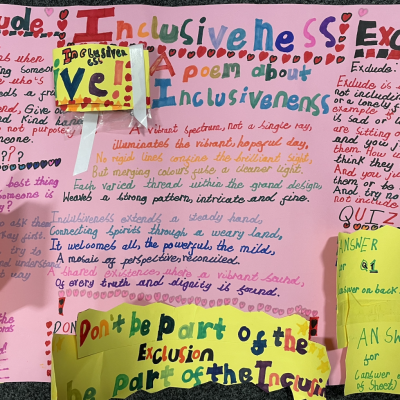 ude..
Inclusiveness!
Exc
Inclusiven
ess
Ve!!
A
poem about
Inclusivenenss
A vibrant spectrum, not a single ray,
illuminates the vibrant, hopeful day,
No rigid lines confine the brilliant sight,
But merging colours fuse a cleaner light.
Each varied thread within the grand design,
Weaves a strong pattern, intricate and fine.
Inclusiveness extends a steady hand,
Connecting spirits through a weary land,
It welcomes all, the powerful, the mild,
A mosaic of perspective, reconciled.
A shared existence, where a vibrant sound,
Of every truth and dignity is found.
Don't be part of the
Exclusion
be part of the Inclusi
Exclude:
Exclude is
not includin
or a lonely
is sad
are sitting
and you
them How
think they
And you
them or
And try no
not include
QUIZ
ANSWER
for Q1
answer on back
ANSW
for
(answer
of sheet)
ude when
ng someon
who's
eds a fri
end, Give
nd Kind
not purpose
meone.
???
best thing
omeone is
y?
ask the
first,
try to
nd understa
way
DON